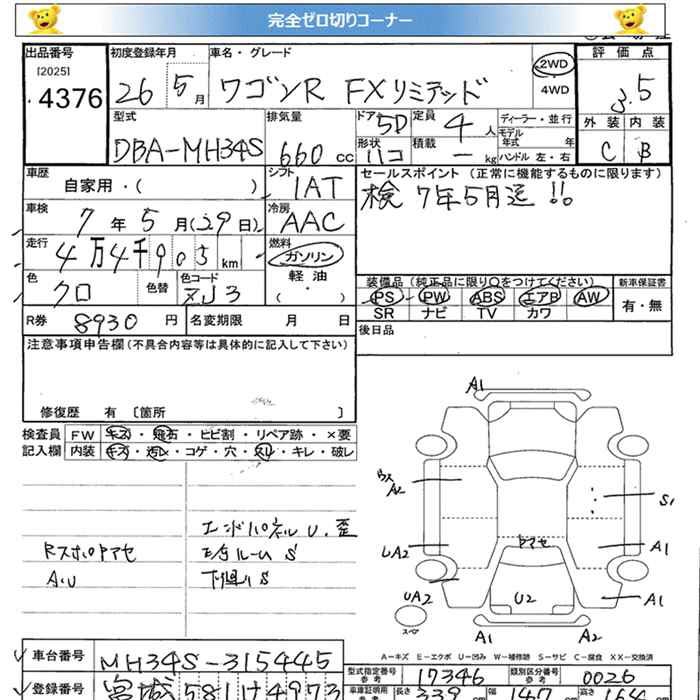 完全ゼロ切りコーナー
出品番号 初度登録年月 車名・グレード 評価点
[2025] 4376 26 5月 ワゴンR FXリミテッド 2WD 4WD 3.5
型式 排気量 ドア 5D 定員 4人 ディーラー・並行 外装 内装
DBA-MH34S 660cc 形状 ハコ 積載 ー kg モデル年式 年 ハンドル 左・右 C B
車歴 自家用・( ) シフト IAT セールスポイント (正常に機能するものに限ります)
車検 7年5月(29日) 冷房 AAC 検 7年5月迄 !!
走行 4万4千905km 燃料 ガソリン 軽油 ( ・ )
色 クロ 色替 色コード ZJ3 装備品 (純正品に限り○をつけてください) 新車保証書
PS PW ABS エアB AW 有・無
SR ナビ TV カワ
R券 8930円 名変期限 月 日 後日品
注意事項申告欄(不具合内容等は具体的に記入して下さい)
修復歴 有 〔箇所 〕
検査員 FW キズ・飛石・ヒビ割・リペア跡・×要
記入欄 内装 キズ・汚レ・コゲ・穴・スレ・キレ・破レ
A1
A2
S1
エンドパネルU.歪
Rスポロアマセ
ルームS
UA2
A1
AU
下廻りS
UA2 U2 A1
スペア
A1 A2
A-キズ E-エクボ U-凹み W-補修跡 S-サビ C-腐食 XX-交換済
車台番号 MH34S-315445
型式指定番号 参考 17346 類別区分番号 参考 0026
登録番号 宮城581け4973
車庫証明用 参考 長さ 339 cm 幅 147 cm 高さ 164 cm